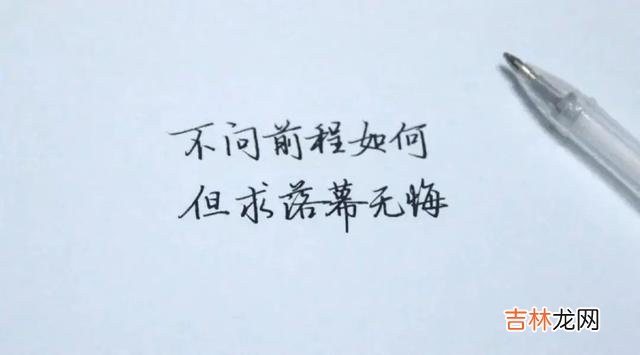 不问前程如何
但求落幕无悔
吉林龙网